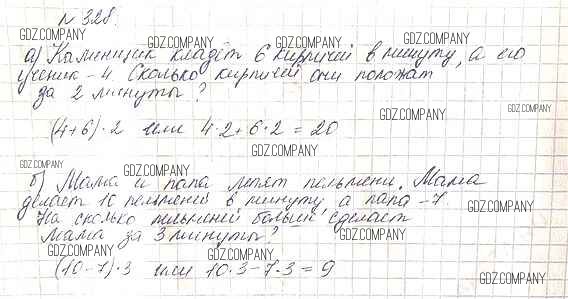 N 328.
GDZ.COMPANY GDZ.COMPANY GDZ.COMPANY GDZ.COMPANY
а) Каменщик кладёт 6 кирпичей в минуту, а его
ученик - 4. Сколько кирпичей они положат
за 2 минуты?
GDZ.COMPANY GDZ.COMPANY
(4+6)·2 или 4·2+6·2=20
GDZ.COMPANY
GDZ.COMPANY GDZ.COMPANY
б) Мама и папа лепят пельмени. Мама
делает 10 пельменей в минуту, а папа - 7.
GDZ.COMPANY
На сколько пельменей больше сделает
мама за 3 минуты?
GDZ.COMPANY
GDZ.COMPANY GDZ.COMPANY
(10-7)·3 или 10·3-7·3=9
GDZ.COMPANY